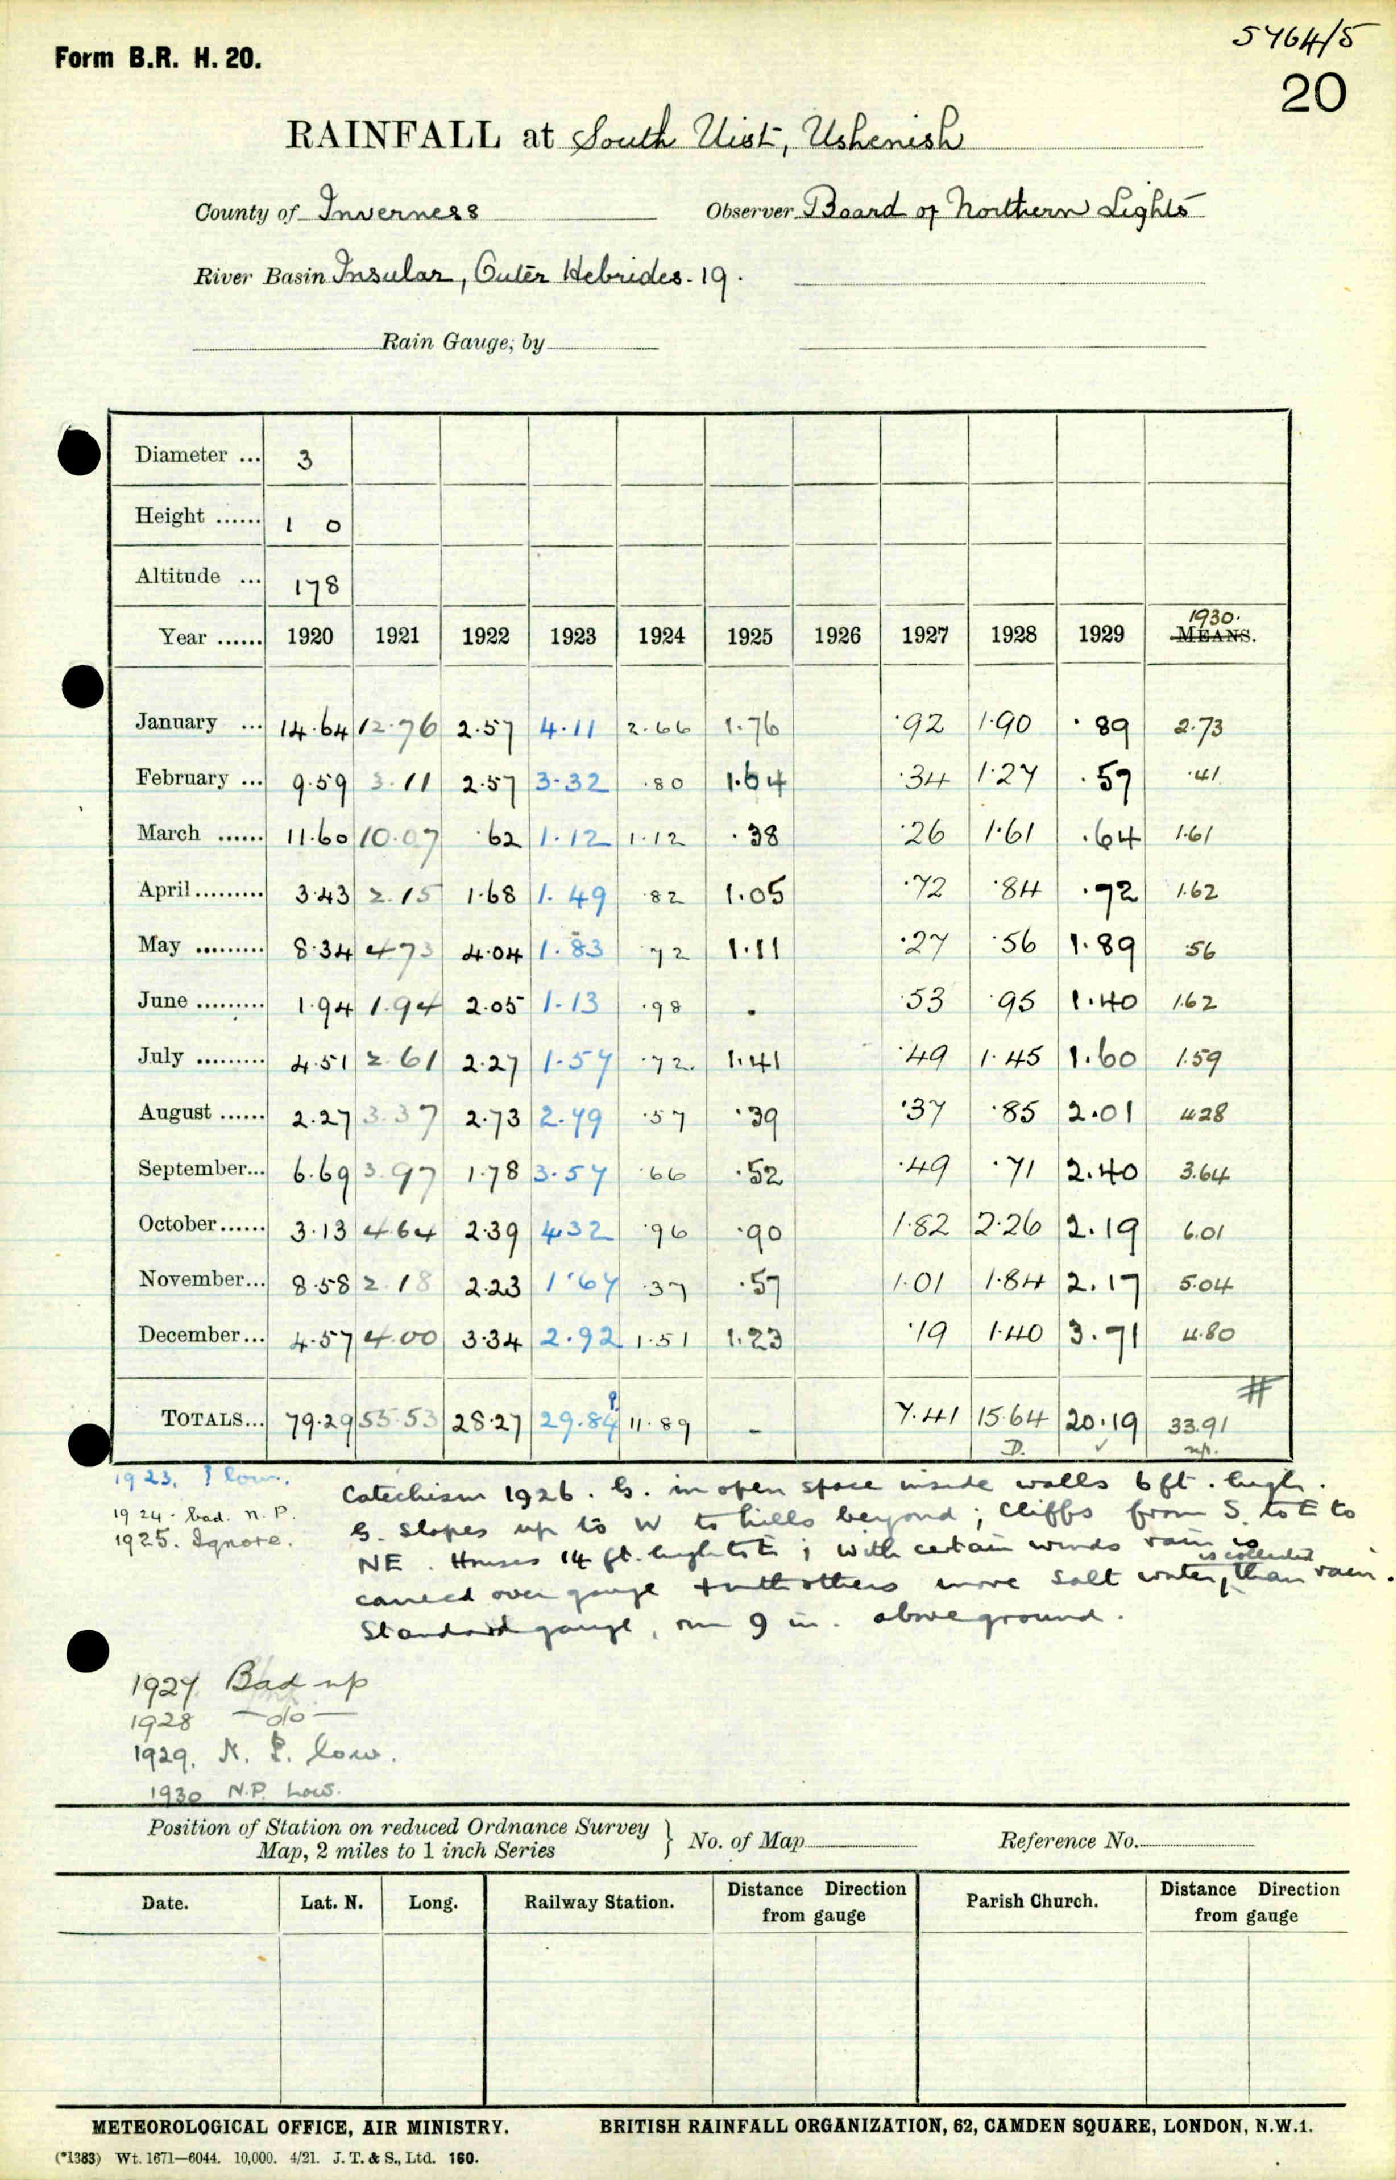 5764/5
Form B.R. H. 20.
20
RAINFALL at South Uist, Ushenish
County of Inverness Observer Board of Northern Lights
River Basin Insular, Outer Hebrides. 19.
Rain Gauge, by
Diameter ... 3
Height ...... 1 0
Altitude ... 178
1930.
Year ...... 1920 1921 1922 1923 1924 1925 1926 1927 1928 1929 MEANS.
January ... 14.64 12.76 2.57 4.11 2.66 1.76 .92 1.90 .89 2.73
February ... 9.59 3.11 2.57 3.32 .80 1.64 .34 1.27 .57 .41
March ...... 11.60 10.07 .62 1.12 1.12 .38 .26 1.61 .64 1.61
April ......... 3.43 2.15 1.68 1.49 .82 1.05 .72 .84 .72 1.62
May ......... 8.34 4.73 4.04 1.83 .72 1.11 .27 .56 1.89 .56
June ......... 1.94 1.94 2.05 1.13 .98 . .53 .95 1.40 1.62
July ......... 4.51 2.61 2.27 1.57 .72. 1.41 .49 1.45 1.60 1.59
August ...... 2.27 3.37 2.73 2.79 .57 .39 .37 .85 2.01 4.28
September... 6.69 3.97 1.78 3.57 .66 .52 .49 .71 2.40 3.64
October ...... 3.13 4.64 2.39 4.32 .96 .90 1.82 2.26 2.19 6.01
November... 8.58 2.18 2.23 1.67 .37 .57 1.01 1.84 2.17 5.04
December... 4.57 4.00 3.34 2.92 1.51 1.23 .19 1.40 3.71 4.80
#
TOTALS... 79.29 55.53 28.27 29.84 11.89 – 7.41 15.64 20.19 33.91
D. ✓ n.p.
1923. ? low.
1924. bad. N.P.
1925. Ignore.
Catechism 1926. G. in open space inside walls 6 ft. high.
G. slopes up to W to hills beyond; Cliffs from S. to E to
NE. Houses 14 ft. high to E; with certain winds rain is
carried over gauge + with others more salt water, is collected than rain.
Standard gauge, rim 9 in. above ground.
1927 Bad np
1928 — do —
1929. N. P. low.
1930 N.P. Low.
Position of Station on reduced Ordnance Survey
Map, 2 miles to 1 inch Series } No. of Map Reference No.
Date. Lat. N. Long. Railway Station. Distance Direction from gauge Parish Church. Distance Direction from gauge
METEOROLOGICAL OFFICE, AIR MINISTRY. BRITISH RAINFALL ORGANIZATION, 62, CAMDEN SQUARE, LONDON, N.W.1.
(*1383) Wt. 1671—6044. 10,000. 4/21. J. T. & S., Ltd. 160.